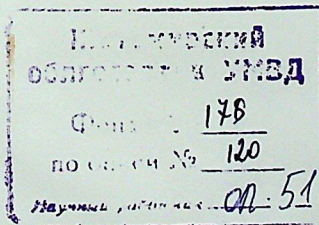 облгосархив УМВД
Фонд 178
по описи № 120
Научный работник ОП. 51